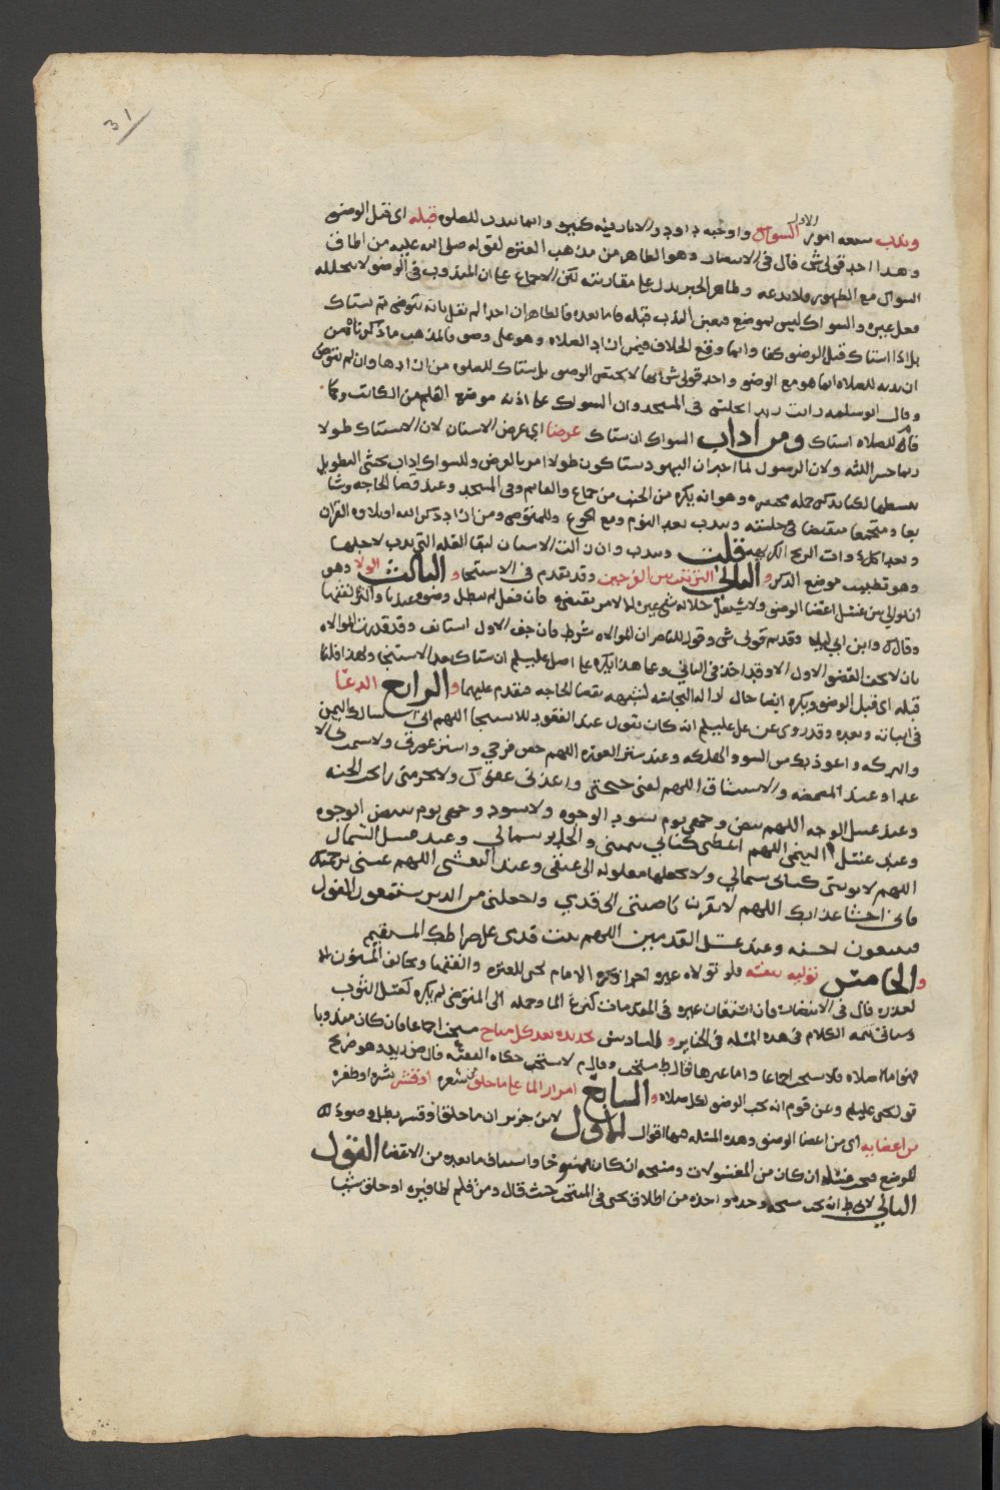 31
وندب سبعه امور الاول السواك واوجبه داود والاحاديث فيه كثيره وانما يندب للصلوه قبله اى قبل الوضو
وهذا احد قولى ش قال فى الانتصار وهو الظاهر من مذهب العتره لقوله صلى الله عليه من اطاق
السواك مع الطهور فلا يدعه وظاهر الخبر يدل على مقارنته لكن الاجماع على ان المندوب فى الوضو لا يتخلله
فعل غيره والسواك ليس بموضع فبعض الندب قبله فاما بعده فالظاهر ان احدا لم يقل بانه يتوضى ثم يستاك
بل اذا استاك قبل الوضو كفا وانما وقع الخلاف فيمن اراد الصلاه وهو على وضو فالمذهب ما ذكرناه من
ان ندبه للصلاه انما هو مع الوضو واحد قولى ش انها لا يختص الوضو بل يستاك للصلوه من ارادها وان لم يتوض
وقال ابو سلمه رايت زيد يجلس فى المسجد وان السواك على اذنه موضع القلم من الكاتب وكلما
قام للصلاه استاك ومن اداب السواك ان يستاك عرضا اي عرض الاسنان لان الاستياك طولا
ربما خسر اللثه ولان الرسول لما اخبر ان اليهود يستاكون طولا امر بالعرض وللسواك اداب يحتمل التطويل
ببسطها لكنا نذكر جمله مختصره وهو انه يكره من الجنب من جماع والقايم وفى المسجد وعند قضا الحاجه
وبعد اكل ذوات الريح الكريهه قلت ويندب وان زالت الاسنان لبقا العله التي يندب لاجلها
وهو تطييب موضع الذكر والثاني الترتيب بين الفرجين وقد تقدم فى الاستنجا والثالث الولا وهو
ان يوالي بين غسل اعضا الوضو ولا يشتغل خلاله بشي غيره الا لامر يقتضى فان فعل لم يبطل وضوه عندنا واكثر الفقها
وقال ك وابن ابي ليلى وقديم قولى ش وقول للناصر ان الموالاه شرط فان جف الاول استانف وقد قدرت الموالاه
بان لا يجف العضو الاول الا وقد اخذ فى الثاني وعلى هذا يكره على اصل عليلم ان يستاك بعد الاستنجا ولهذا قلنا
قبله اى قبل الوضو ويكره ايضا حال ازاله النجاسه لشبهه بقضا الحاجه فيقدم عليهما والرابع الدعا
فى اثنائه وبعده وقد روى عن على عليلم انه كان يقول عند القعود للاستنجا اللهم انى اسالك اليمن
والبركه واعوذ بك من السو والهلكه وعند ستر العوره اللهم حصن فرجي واستر عورتى ولا تشمت بى الا
عدا وعند المضمضه والاستنشاق اللهم لقنى حجتى واعذنى عفوك ولا تحرمنى رايحه الجنه
وعند غسل الوجه اللهم بيض وجهى يوم تسود الوجوه ولا تسود وجهى يوم تبيض الوجوه
وعند غسل اليمنى اللهم اعطنى كتابي بيمينى والخلد بشمالي وعند غسل الشمال
اللهم لا توتنى كتابى بشمالي ولا تجعلها مغلوله الى عنقى وعند المسح اللهم غشنى برحمتك
فانى اخشا عذابك اللهم لا تقرن ناصيتى الى قدمي واجعلنى من الذين يستمعون القول
فيتبعون احسنه وعند غسل القدمين اللهم ثبت قدمى على صراطك المستقيم
والخامس توليه بنفسه فلو تولاه غيره اجزا وكره الامام يحيى للعتره والفقها
لعذره قال فى الانتصار فان استعان بغيره فى المقدمات كنزع الما وحمله الى المتوضى لم يكره كغسل الثوب
وسياتى تتمه الكلام فى هذه المسله فى الجنايز والسادس تجديده بعد كل مباح مستحب اجماعا فان كان مندوبا
فهو اما صلاه فلا يستحب اجماعا واما غيرها فقال ط يستحب وقال م لا يستحب حكاه الفقيه قال ض زيد وهو صريح
قول يحيى عليلم وعن قوم انه يجب الوضو لكل صلاه والسابع امرار الما على ما حلق من شعره او قشر بشره او ظفره
من اعضايه اى من اعضا الوضو وهذه المسله فيها اقوال الاول لابن جرير ان ما حلق او قشر بطل وضوءه
للموضع فيجب غسله ان كان من المغسولات ومسحه ان كان ممسوحا واستيناف ما بعده من الاعضا القول
الثاني لابى ط انه يجب مسحه وحده مره واحده من اطلاق يحيى فى المنتخب حيث قال ومن قلم اظافيره او حلق شيا